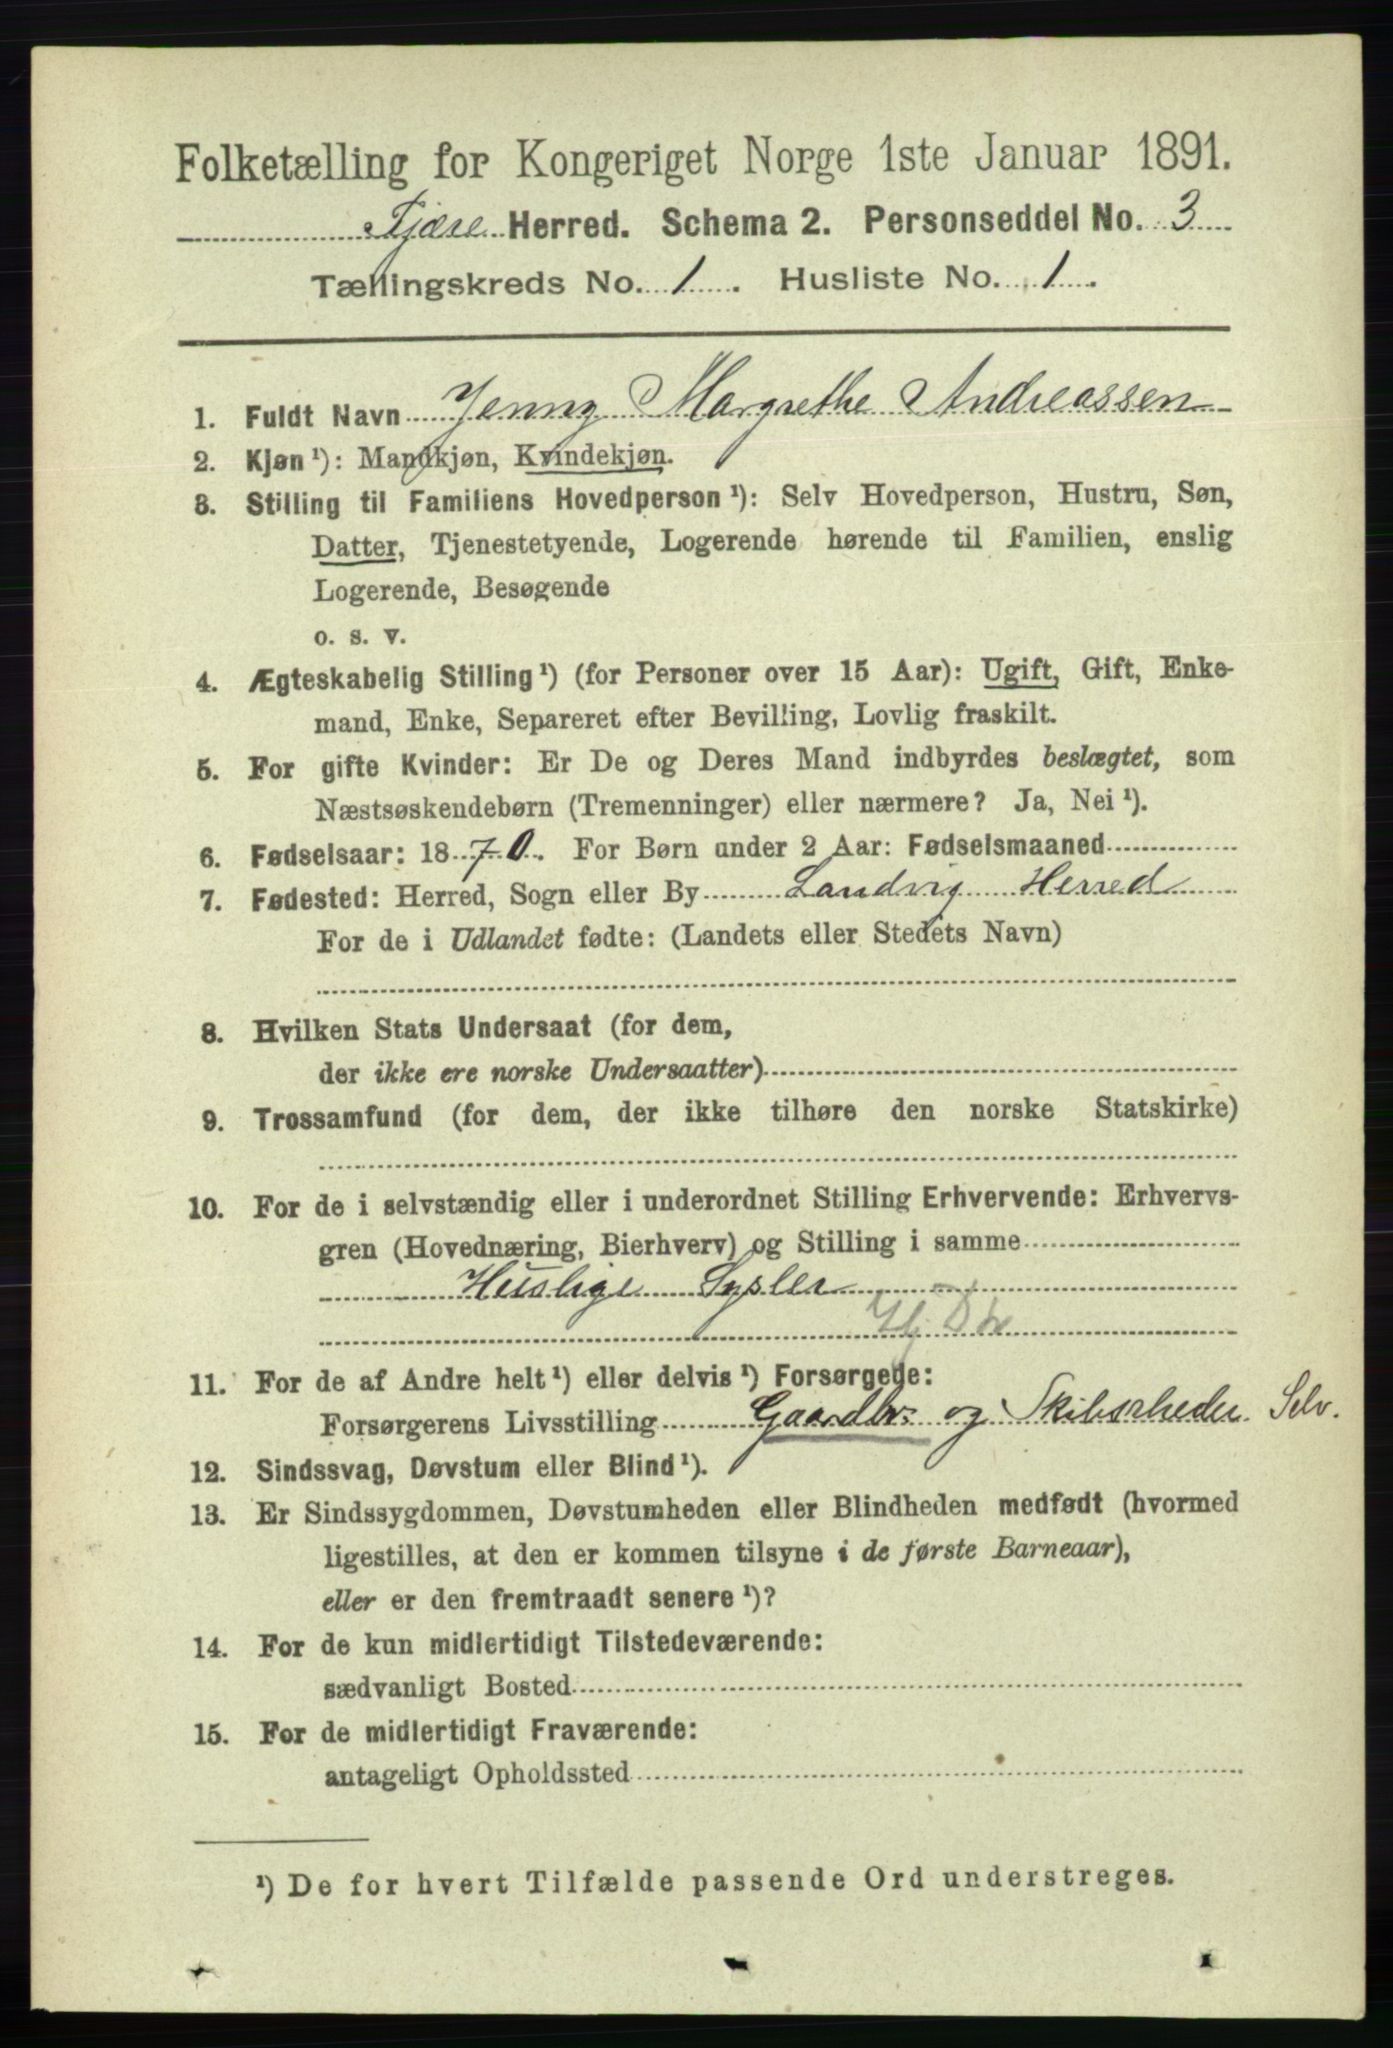 Folketælling for Kongeriget Norge 1ste Januar 1891.
Fjære Herred. Schema 2. Personseddel No. 3
Tællingskreds No. 1. Husliste No. 1.
1. Fuldt Navn Jenny Margrethe Andreassen
2. Kjøn ¹): Mandkjøn, Kvindekjøn.
3. Stilling til Familiens Hovedperson ¹): Selv Hovedperson, Hustru, Søn,
Datter, Tjenestetyende, Logerende hørende til Familien, enslig
Logerende, Besøgende
o. s. v.
4. Ægteskabelig Stilling ¹) (for Personer over 15 Aar): Ugift, Gift, Enke-
mand, Enke, Separeret efter Bevilling, Lovlig fraskilt.
5. For gifte Kvinder: Er De og Deres Mand indbyrdes beslægtet, som
Næstsøskendebørn (Tremenninger) eller nærmere? Ja, Nei ¹).
6. Fødselsaar: 1870. For Børn under 2 Aar: Fødselsmaaned
7. Fødested: Herred, Sogn eller By Landvig Herred
For de i Udlandet fødte: (Landets eller Stedets Navn)
8. Hvilken Stats Undersaat (for dem,
der ikke ere norske Undersaatter)
9. Trossamfund (for dem, der ikke tilhøre den norske Statskirke)
10. For de i selvstændig eller i underordnet Stilling Erhvervende: Erhvervs-
gren (Hovednæring, Bierhverv) og Stilling i samme
Huslige Sysler
11. For de af Andre helt ¹) eller delvis ¹) Forsørgede:
Forsørgerens Livsstilling Gaardbr. og Skibsrheder Selv.
12. Sindssvag, Døvstum eller Blind ¹).
13. Er Sindssygdommen, Døvstumheden eller Blindheden medfødt (hvormed
ligestilles, at den er kommen tilsyne i de første Barneaar),
eller er den fremtraadt senere ¹)?
14. For de kun midlertidigt Tilstedeværende:
sædvanligt Bosted
15. For de midlertidigt Fraværende:
antageligt Opholdssted
¹) De for hvert Tilfælde passende Ord understreges.